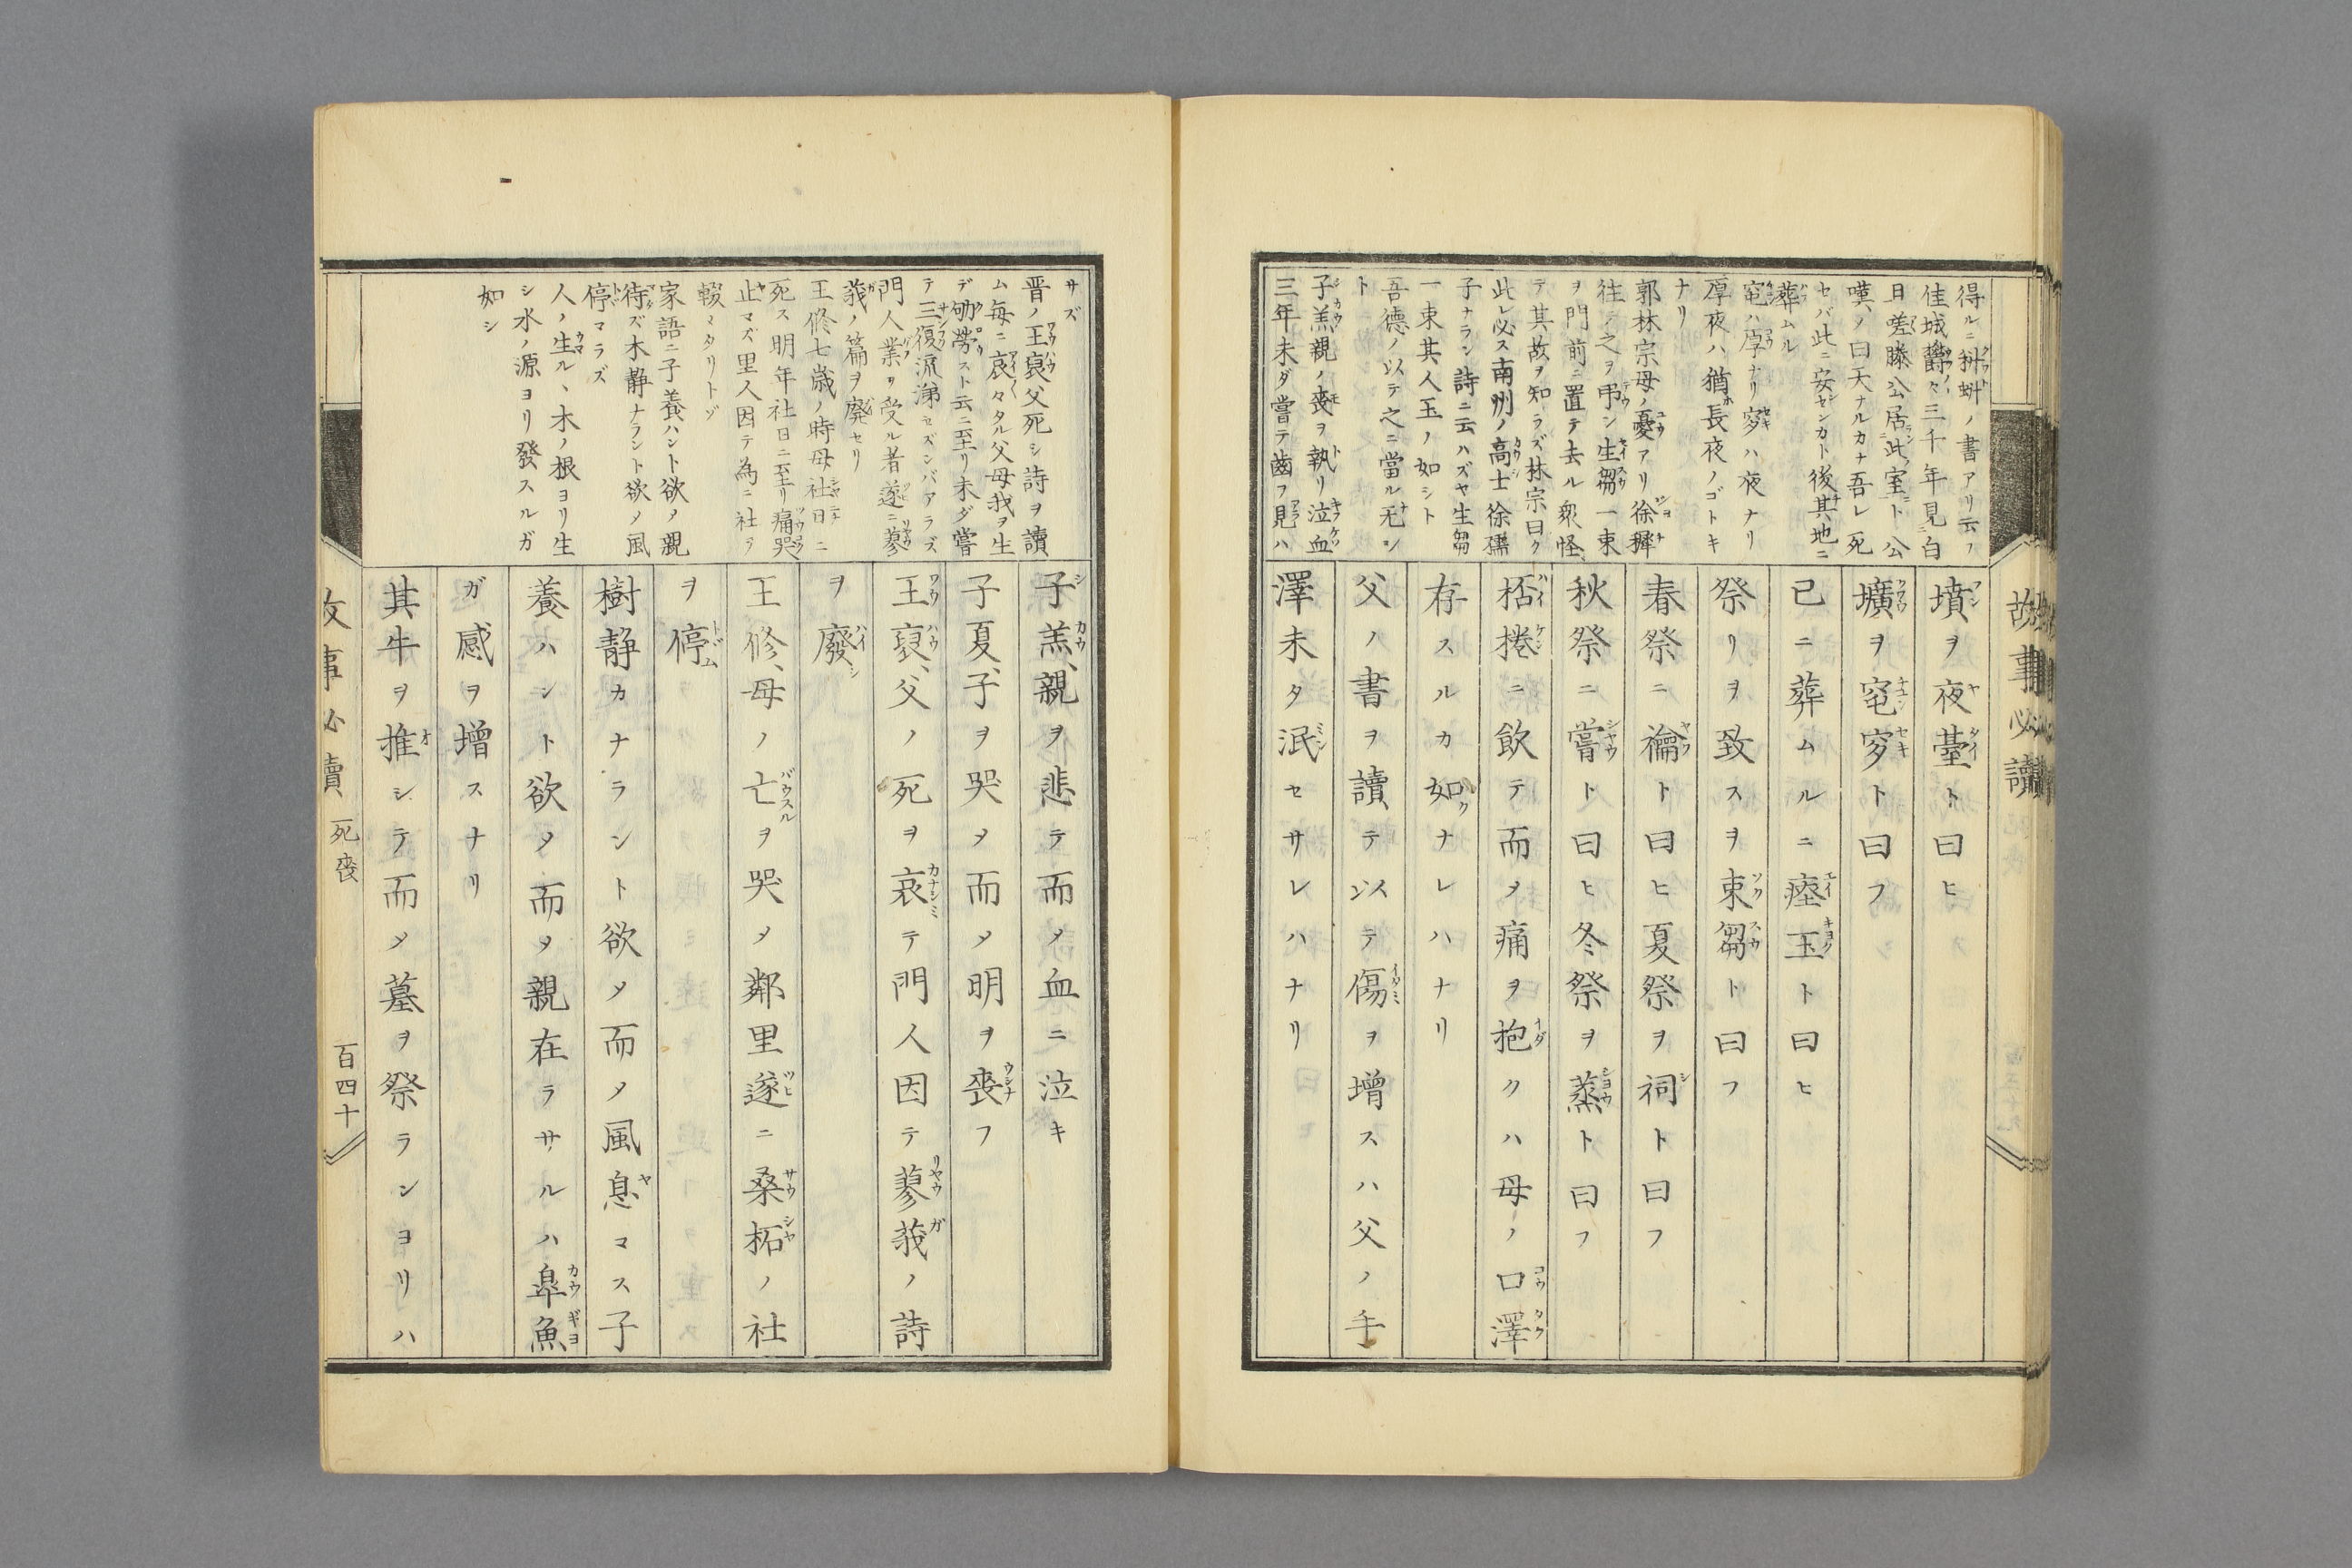 故事必讀
得ルニ蝌蚪ノ書アリ云フ
佳城欝々三千年見白
日嗟滕公居此室ニト公
嘆ノ曰天ナルカナ吾レ死
セバ此ニ安センカト後其地ニ
葬ムル
窀ハ厚ナリ穸ハ夜ナリ
厚夜ハ猶長夜ノゴトキ
ナリ
郭林宗母ノ憂アリ徐穉
往テ之ヲ弔ン生芻一束
ヲ門前ニ置テ去ル衆怪
テ其故ヲ知ラズ林宗曰ク
此レ必ス南州ノ高士徐孺
子ナラン詩ニ云ハズヤ生芻
一束其人玉ノ如シト
吾德ノ以テ之ニ當ル无シ
ト
子羔親ノ喪ヲ執リ泣血
三年未ダ嘗テ齒ヲ見ハ
墳ヲ夜臺ト曰ヒ
壙ヲ窀穸ト曰フ
已ニ葬ムルニ瘞玉ト曰ヒ
祭リヲ致スヲ束芻ト曰フ
春祭ニ禴ト曰ヒ夏祭ヲ祠ト曰フ
秋祭ニ嘗ト曰ヒ冬祭ヲ蒸ト曰フ
桮棬ニ飲テ而ノ痛ヲ抱クハ母ノ口澤
存スルカ如クナレハナリ
父ノ書ヲ讀テ以テ傷ヲ增スハ父ノ手
澤未タ泯セサレハナリ
サズ
晋ノ王裒父死シ詩ヲ讀
ム每ニ哀々タル父母我ヲ生
デ劬勞スト云ニ至リ未ダ嘗
テ三復流涕セズンバアラズ
門人業ヲ受ル者遂ニ蓼
莪ノ篇ヲ廢セリ
王修七歳ノ時母社日ニ
死ス明年社日ニ至リ痛哭
止マズ里人因テ為ニ社ヲ
輟メタリトゾ
家語ニ子養ハント欲ノ親
待ズ木静ナラント欲ノ風
停マラズ
人ノ生ル、木ノ根ヨリ生
シ水ノ源ヨリ發スルガ
如シ
子羔、親ヲ悲テ而ノ血ニ泣キ
子夏、子ヲ哭ノ而ノ明ヲ喪フ
王裒、父ノ死ヲ哀テ門人因テ蓼莪ノ詩
ヲ廢シ
王修、母ノ亡ヲ哭ノ鄰里遂ニ桑柘ノ社
ヲ停ム
樹静カナラント欲ノ而ノ風息マス子
養ハント欲ノ而ノ親在ラサルハ皐魚
ガ感ヲ增スナリ
其牛ヲ推シテ而ノ墓ヲ祭ランヨリハ
故事必讀 死喪 百四十